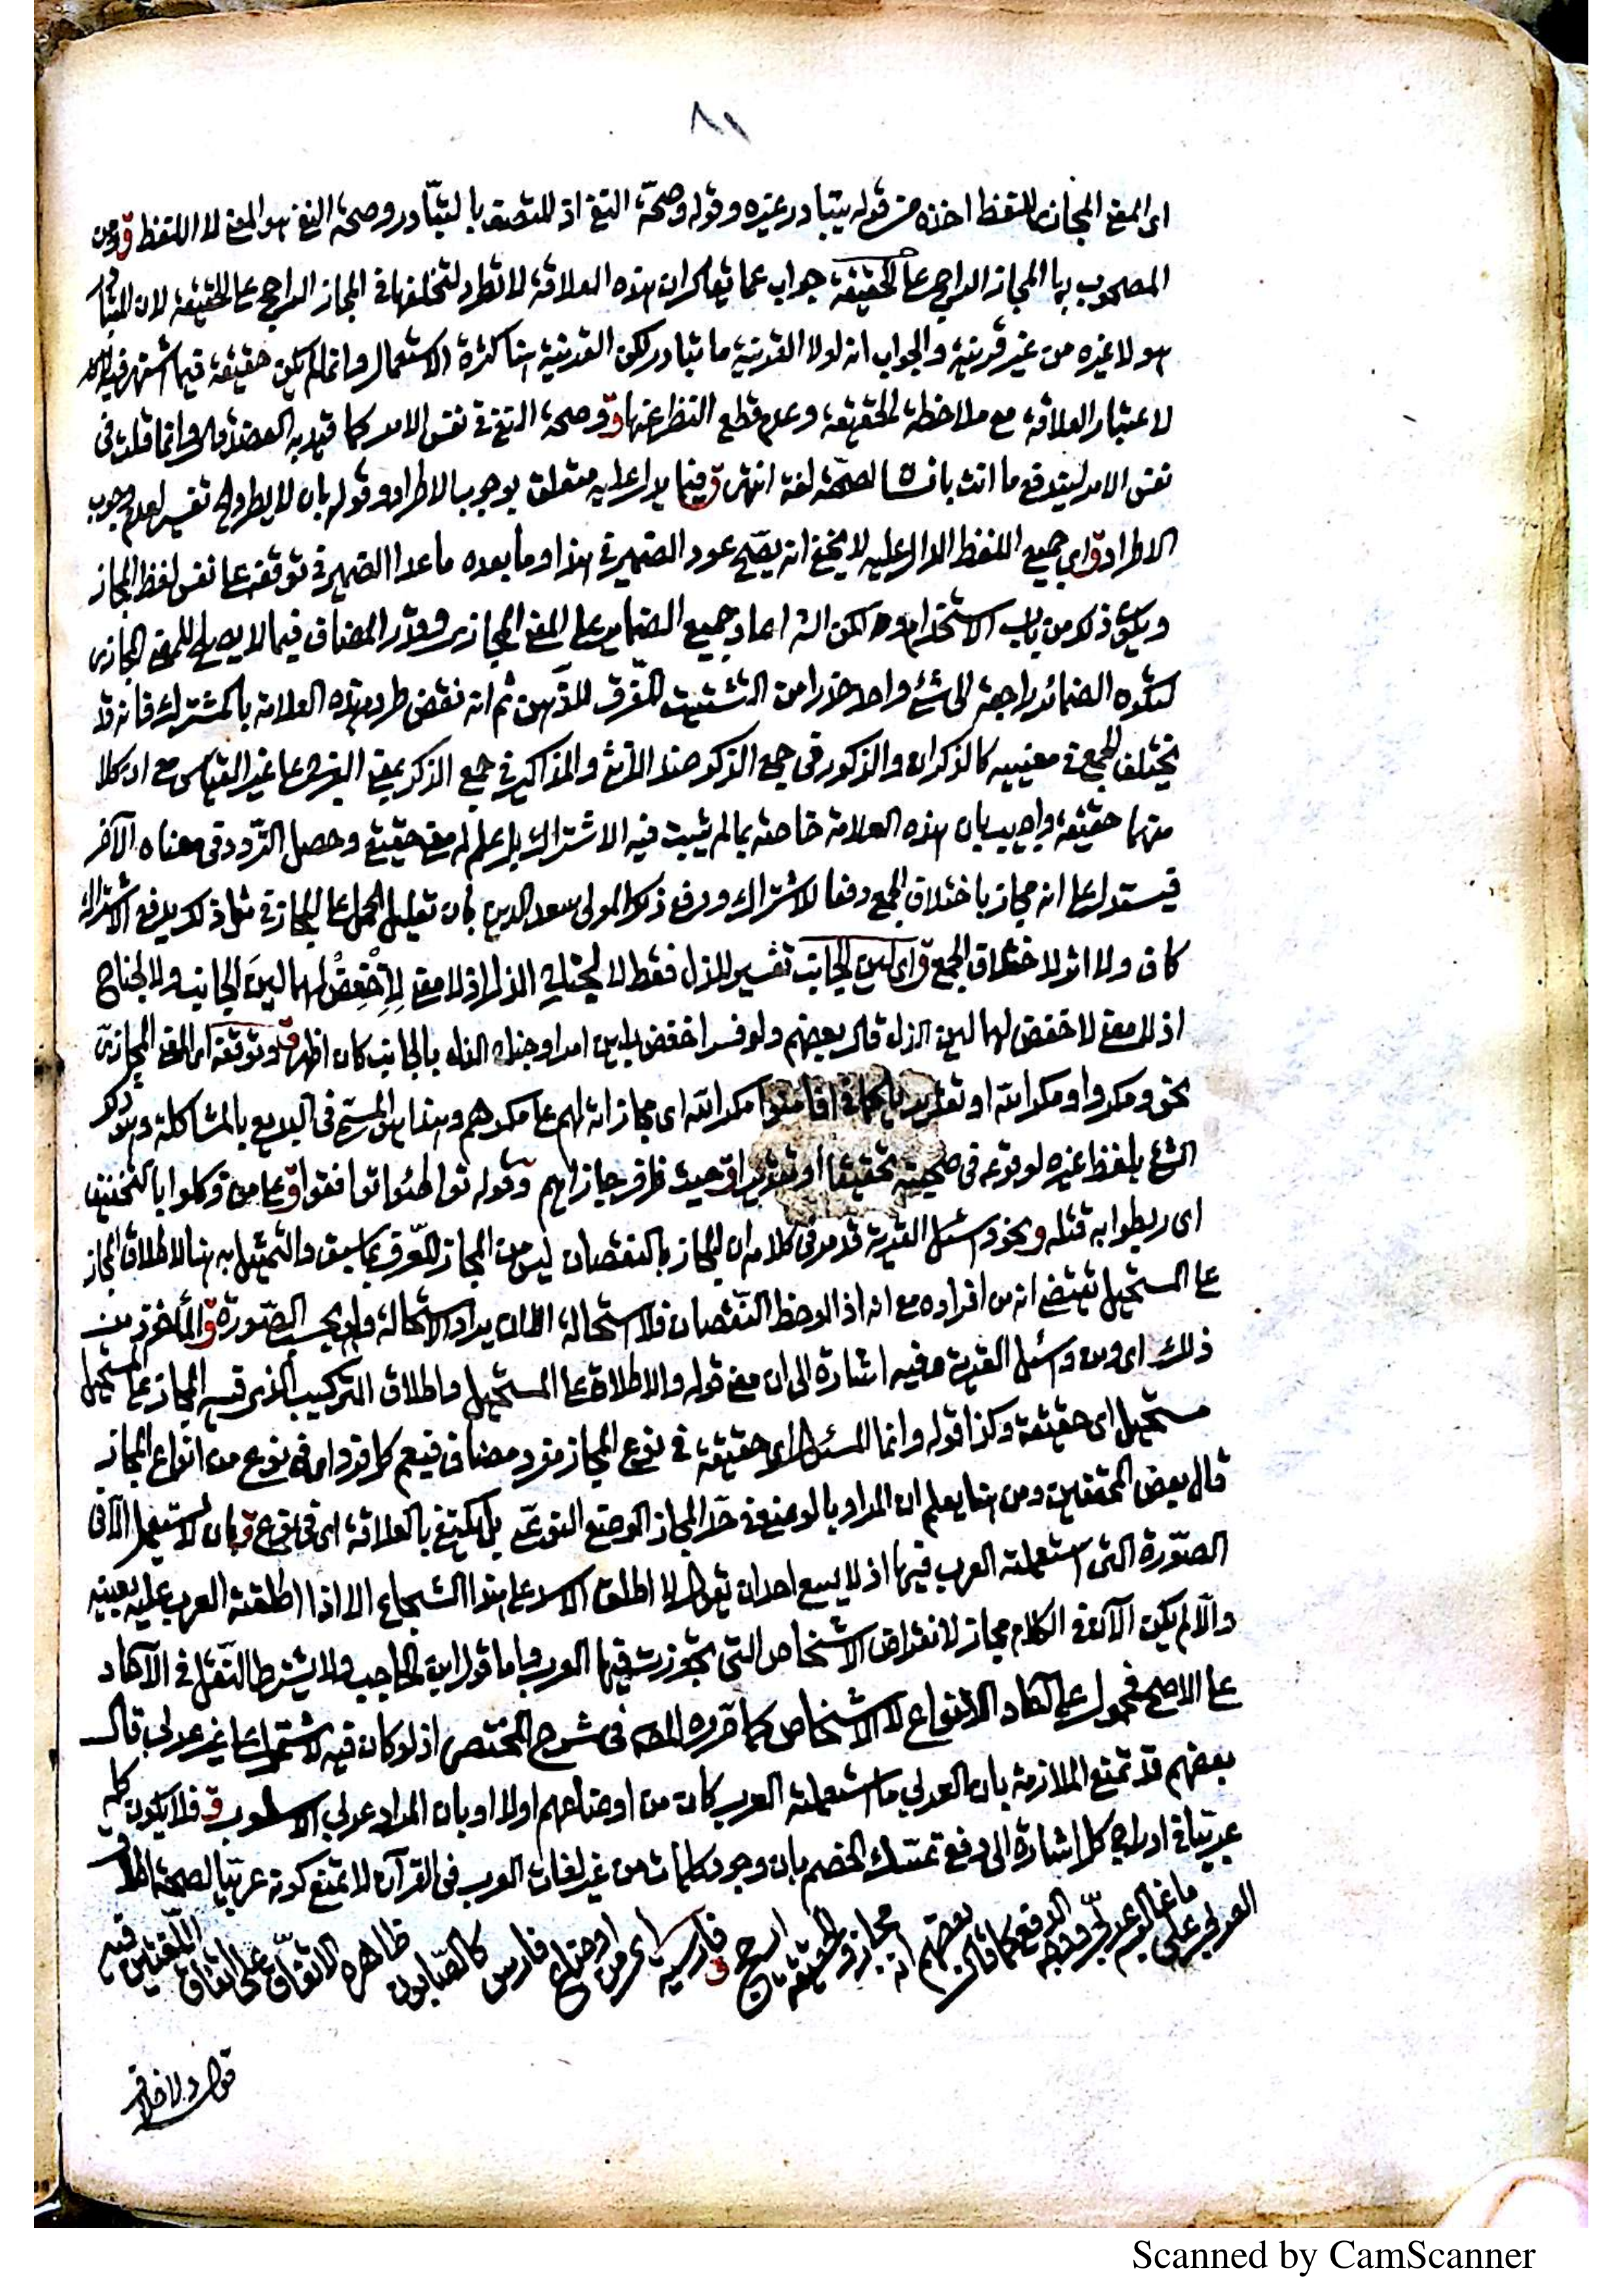 ٨١
اى المعنى المجازى للفظ اخذه من قوله يتبادر غيره وقوله وصحة النفى اذ المتصف بالتبادر وصحة النفى هو المعنى لا اللفظ ق ومن
المصحوب بها المجاز الراجح على الحقيقة جواب عما يقال ان هذه العلاقة لا تطرد لتخلفها فى المجاز الراجح على الحقيقة لان المتبادر
هو لا غيره من غير قرينة والجواب انه لولا القرينة ما تبادر لكن القرينة هنا كثرة الاستعمال وانما لم يكن حقيقة فيما اشتهر فيه
لاعتبار العلاقة مع ملاحظة الحقيقة وعدم قطع النظر عنها ق وصحة النفى فى نفس الامر كما قيد به العضد قال وانما قلت فى
نفس الامر ليندفع ما انت بانسان لصحته لغة انتهى ق فيما يدل عليه متعلق بوجوب الاطراد وقوله بان لا يطرد تفسير لعدم وجوب
الاطراد ق اى جميع اللفظ الدال عليه لا يخفى انه يصح عود الضمير فى هذا وما بعده ما عدا الضمير فى توقفه على نفس لفظ المجاز
ويكون ذلك من باب الاستخدام لكن الش اعاد جميع الضماير على المعنى المجازى وقدر المضاف فيما لا يصلح للمعنى المجازى
لتكون الضمائر راجعة الى شئ واحد حذرا من التشتيت المفرق للذهن ثم انه نقض طرد هذه العلامة بالمشترك فانه قد
يختلف الجمع فى معنييه كالذكران والذكور فى جمع الذكر ضد الانثى والمذاكير فى جمع الذكر بمعنى الفرج على غير القياس مع ان كلا
منهما حقيقة واجيب بان هذه العلامة خاصة بما لم يثبت فيه الاشتراك بل علم له معنى حقيقى وحصل التردد فى معناه الآخر
فيستدل على انه مجاز باختلاف الجمع دفعا للاشتراك ودفع ذلك المولى سعد الدين بان تعليل الحمل على المجاز فى مثل ذلك بدفع الاشتراك
كاف ولا اثر لاختلاف الجمع ق اى لين الجانب تفسير للذل فقط لا لجناح الذل اذ لا معنى لاخفض لهما لين الجانب ولا لجناح
اذ لا معنى لاخفض لهما لين الذل قال بعضهم ولو فسر اخفض بلين امرا وجناح الذل بالجانب كان اظهر ق وتوقفه اى المعنى المجازى
نحو ومكروا ومكر الله او تقديرا كما فى افأمنوا مكر الله اى مجازاته لهم على مكرهم وهذا هو المسمى فى البديع بالمشاكلة وهو ذكر
الشئ بلفظ غيره لوقوعه فى صحبته تحقيقا او تقديرا ق حيث ظرف جازاهم وقوله تواطئوا توافقوا ق على من وكلوا بالتخفيف
اى ربطوا به قتله ونحو واسئل القرية قد مر فى كلامه ان المجاز بالنقصان ليس من المجاز المعرف بما سبق والتمثيل به هنا لاطلاق المجاز
على المستحيل يقتضى انه من افراده مع انه اذا لوحظ النقصان فلا استحالة الا ان يراد الاستحالة ولو بحسب الصورة ق والمأخوذ من
ذلك اى ومن واسئل القرية وفيه اشارة الى ان معنى قوله والاطلاق على المستحيل واطلاق التركيب الذى فيه المجاز على المستحيل
مستحيل اى حقيقة وكذا قوله وانما المسئول اى حقيقة فى نوع المجاز مفرد مضاف فيعم كل فرد اى فى نوع من انواع المجاز
قال بعض المحققين ومن هنا يعلم ان المراد بالوضع فى حد المجاز الوضع النوعى بل يكتفى بالعلاقة اى فى نوع ق بان لا يستعمل الا فى
الصورة التى استعملته العرب فيها اذ لا يسع احدا ان يقول لا اطلق الاسد على هذا الشجاع الا اذا اطلقته العرب عليه بعينه
والا لم يكن الآن فى الكلام مجاز لانقراض الاشخاص التى تجوزت فيها العرب واما قول ابن الحاجب ولا يشترط النقل فى الآحاد
على الاصح فمحمول على آحاد الانواع لا الاشخاص كما قرره المصـ فى شرح المختصر اذ لو كان فيه لاشتمل على غير عربى قال
بعضهم قد تمنع الملازمة بان العربى ما استعملته العرب كان من اوضاعهم اولا او بان المراد عربى الاسلوب ق فلا يكون كله
عربيا فى ادراج كل اشارة الى دفع تمسك الخصم بان وجود كلمات من غير لغات العرب فى القرآن لا تمنع كونه عربيا لصحة اطلاق
العربى على ما غالبه عربى ووجه الدفع كما قال بعضهم انه مجاز والحقيقة ارجح ق فارسية اى من اوضاع فارس كالصابون ظاهره الاتفاق على اتفاق اللغتين فيه
قوله ولا خلاف
Scanned by CamScanner